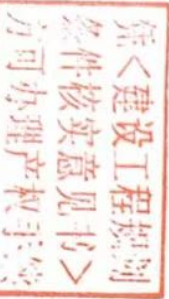 <建设工程规划
条件核实意见书>
方可办理产权手续